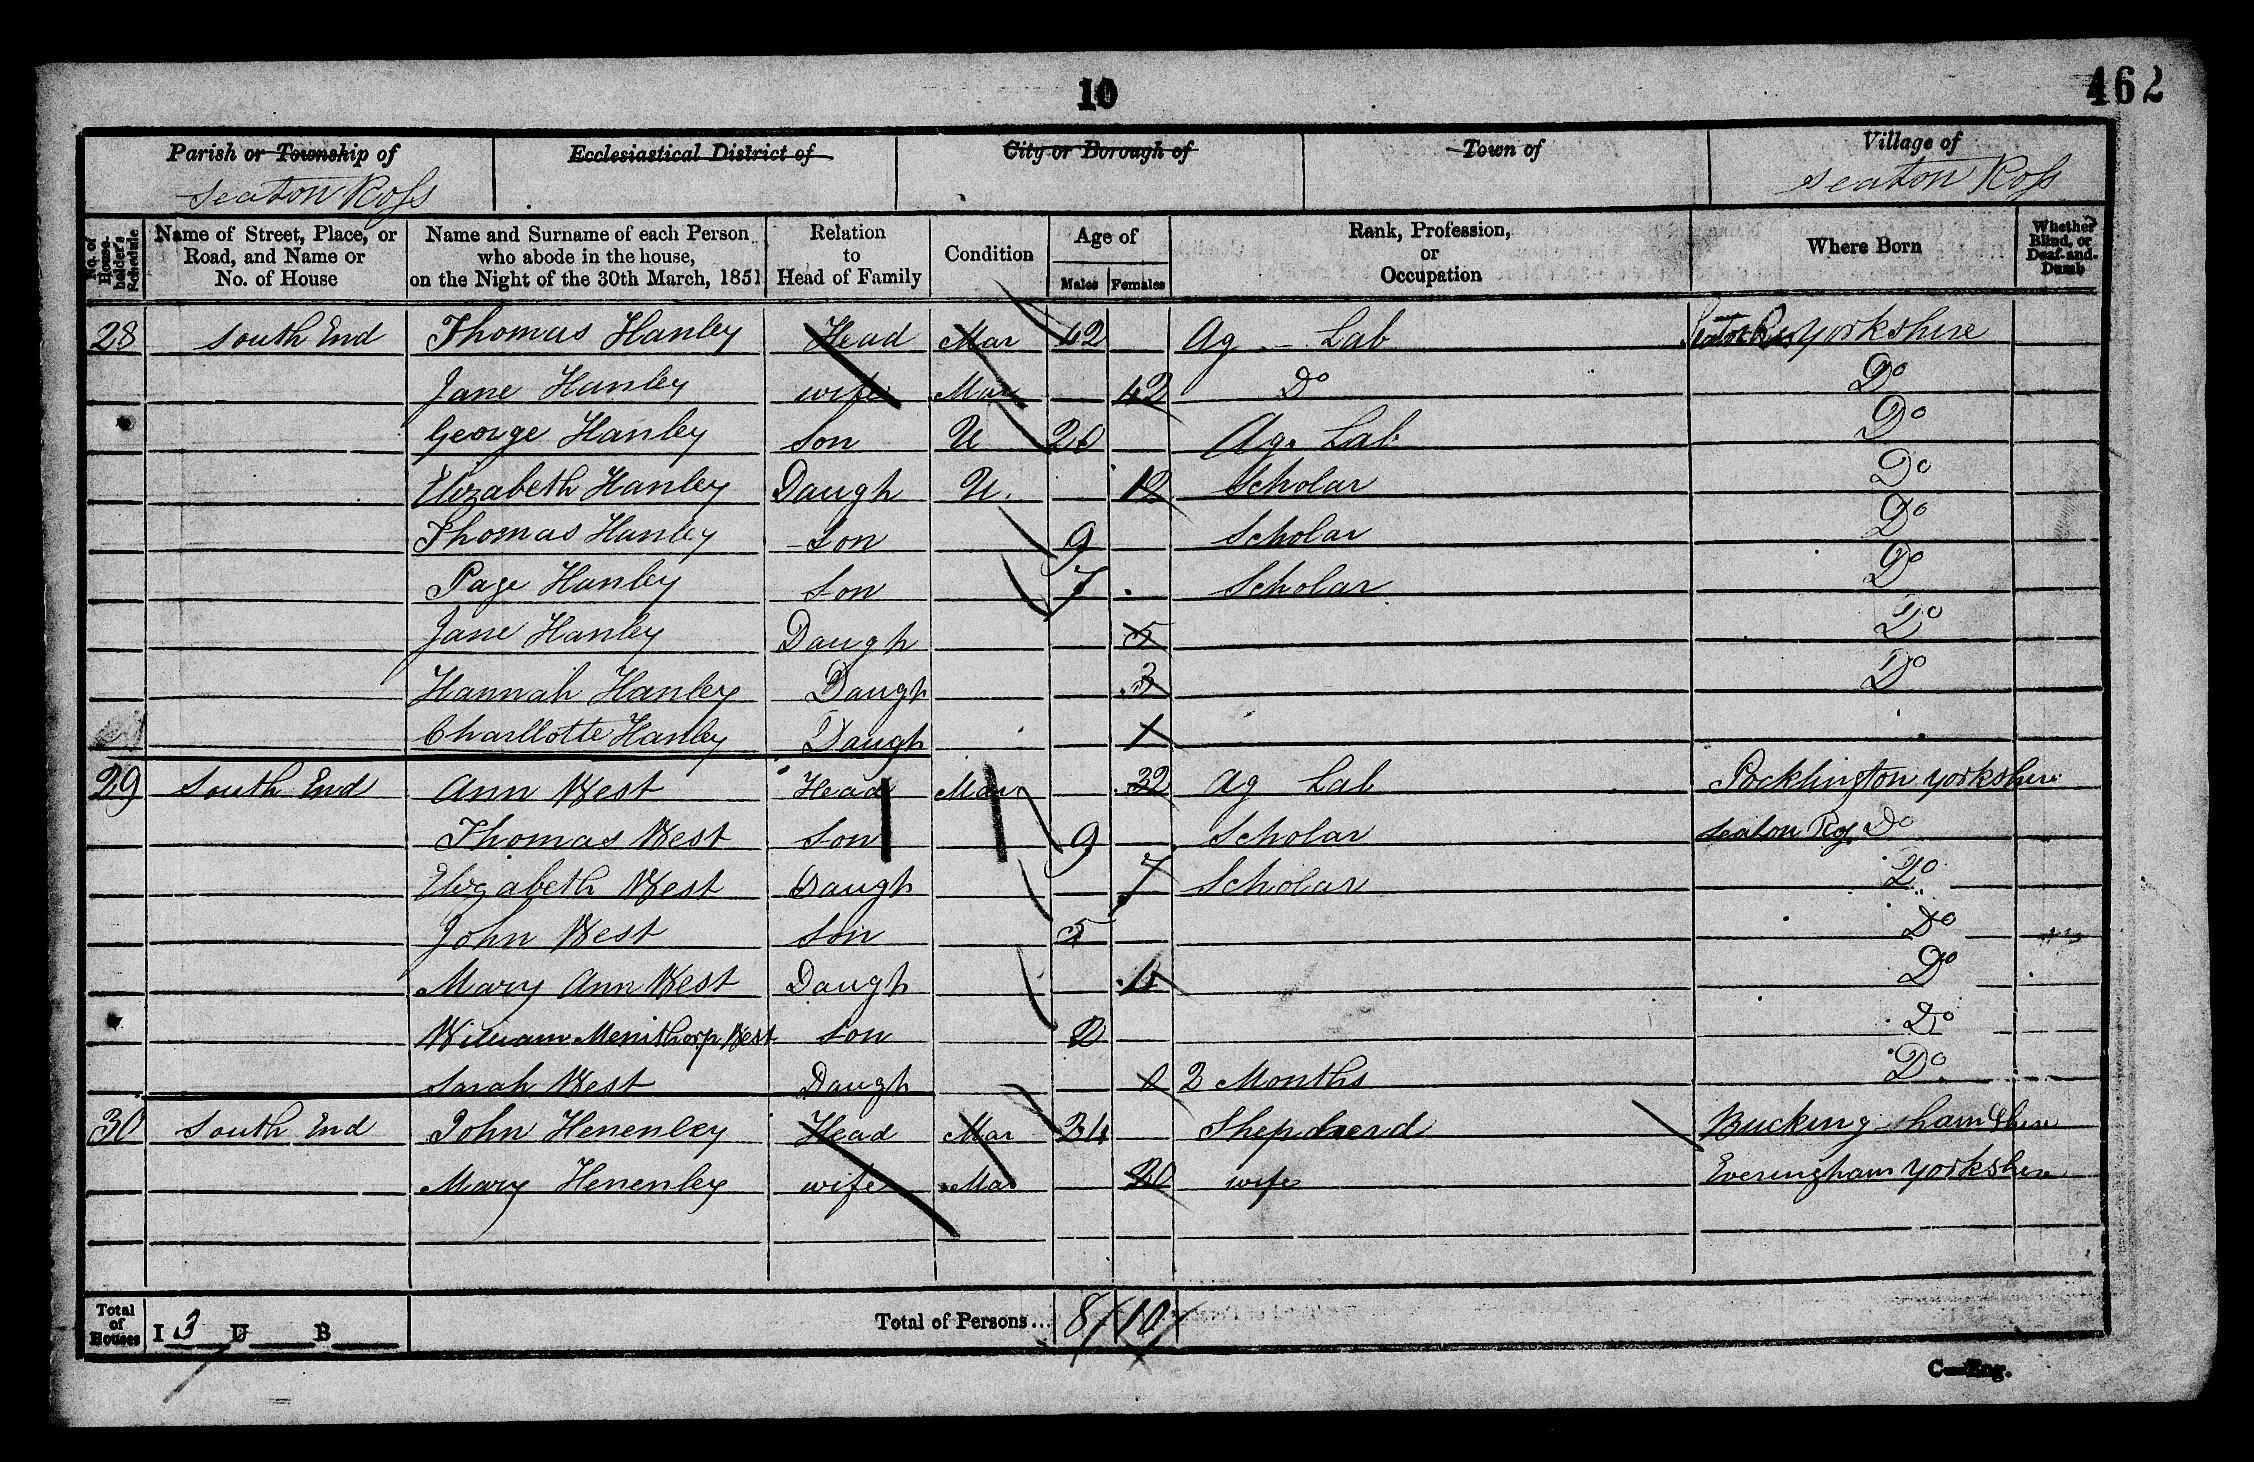 10
462
Parish or Township of
Ecclesiastical District of
City or Borough of
Town of
Village of
Seaton Ross
Seaton Ross
No. of House-holder's Schedule
Name of Street, Place, or Road, and Name or No. of House
Name and Surname of each Person who abode in the house, on the Night of the 30th March, 1851
Relation to Head of Family
Condition
Age of
Males Females
Rank, Profession, or Occupation
Where Born
Whether Blind, or Deaf-and-Dumb
28 South End Thomas Hanley Head Mar 42 Ag - Lab Seaton Ross Yorkshire
Jane Hanley wife Mar 42 Do Do
George Hanley Son U 20 Ag. Lab Do
Elizabeth Hanley Daugh U. 12 Scholar Do
Thomas Hanley Son 9 Scholar Do
Page Hanley Son 7 Scholar Do
Jane Hanley Daugh 5 Do
Hannah Hanley Daugh 3 Do
Charllotte Hanley Daugh 1
29 South End Ann West Head Mar 32 Ag Lab Pocklington Yorkshire
Thomas West Son 9 Scholar Seaton Ros Do
Elizabeth West Daugh 7 Scholar Do
John West Son 5 Do
Mary Ann West Daugh 4 Do
William Menithorp West Son 2 Do
Sarah West Daugh 0 2 Months Do
30 South End John Henenley Head Mar 24 Shepherd Bucking-hamShire
Mary Henenley wife Mar 20 wife Everingham Yorkshire
Total of Houses
I 3 U B
Total of Persons... 8 10
C—Eng.